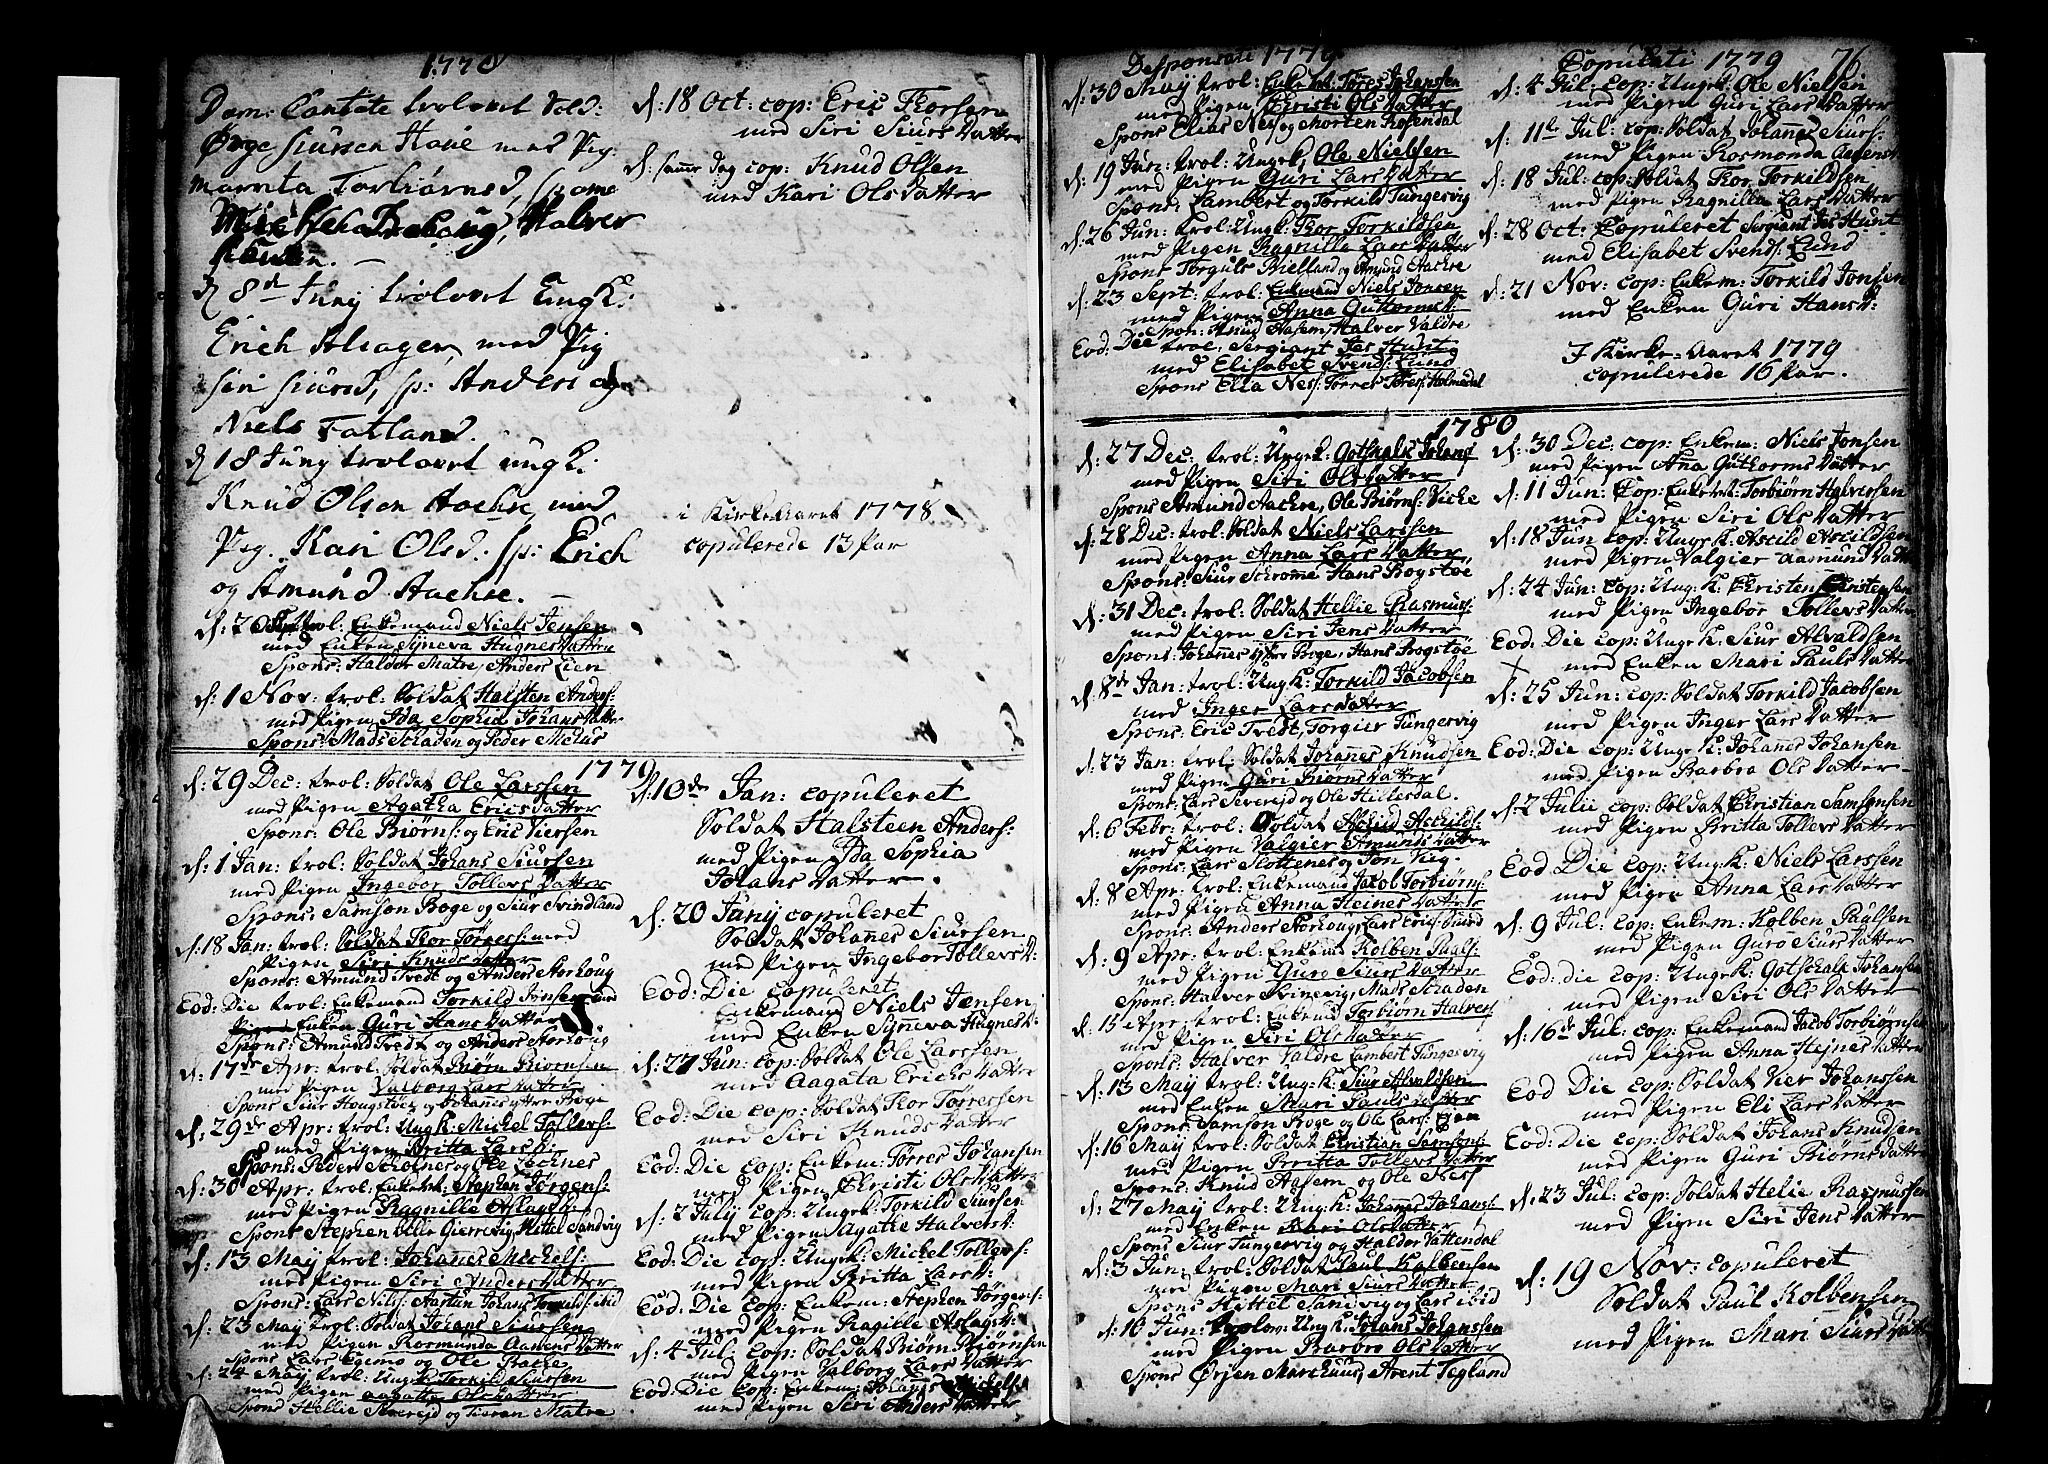 1778
Dom: Cantate trolovet Sold:
Ørge Siursen Hove med Pig:
Marrita Torbiørnsd, sp: ome
Halver
d 8de Juny trolovet Ungk:
Erich Alsager, med Pig
Siri Siursd, sp: Anders og
Niels Fatland.
d 18 Juny trolovet ungk:
Knud Olsen Aachre, med
Pig. Kari Olsd: sp: Erich
og Amund Aachre.
trol: Enkemand Niels Jensen
med Enken Syneva HugnesDatter
Spons: Haldor Matre, Anders Lien
d: 1 Nov: trol: Soldat Halsten Anders:
med Pigen Ida Sophia JohansDatter
Spons: Mads Schaden og Peder Mehus
d: 18 Oct: cop: Eric Thorsen
med Siri SiursDatter
d: samme Dag cop: Knud Olsen
med Kari OlsDatter
i KirkeAaret 1778
copulerede 13 Par
1779
d: 29 Dec: trol: Soldat Ole Larssen
med Pigen Agatha EricsDatter
Spons: Ole Biørns: og Eric Viersen
d: 1 Jan: trol: Soldat Johans Siursen
med Pigen Ingebor TollevsDatter
Spons: Samson Boge og Siur Svindland
d: 18 Jan: trol: Soldat Thor Tørres: med
Pigen Siri KnudsDatter
Spons: Amund Tvedt og Anders Storhoug
Eod: Die trol: Enkemand Torkild Jonsen med
Enken Guri HansDatter
Spons: Amund Tvedt og Anders Storhoug
d: 17de Apr: trol: Soldat Biørn Biørnsen
med Pigen Valborg LarsDatter
Spons Siur Hougstøe og Johanes yttre Boge
d: 29de Apr: trol: Ungk: Michel Tollevs:
med Pigen Britta Larsd:
Spons: Peder Scholnes og Ole Lechnes
d: 30 Apr: trol: Enkem: Stephen Jørgens:
med Pigen Ragnille Aslagsd:
Spons Stephen Olle Gierevig Hittel Sandvig
d: 13 May trol: Johanes Michels:
med Pigen Siri AndersDatter
Spons: Lars Nils: Aartun Johans Torkilds: ibid
d: 23 May trol: Soldat Johans Siursen
med Pigen Rosmunda AamensDatter
Spons Lars Egemo og Ole Bache
d: 24 May trol: Ungk: Torkild Siursen
med Pigen Aagatte OlsDatter
Spons Hellie Severejd og Matre
d: 10de Jan: copuleret
Soldat Halsteen Anders:
med Pigen Ida Sophia
JohansDatter.
d: 20 Juny copuleret
Soldat Johanes Siursen
med Pigen Ingebor TollevsD:
Eod: Die copuleret
Enkemand Niels Jensen
med Enken Synneva HugnesD:
d: 27 Jun: cop: Soldat Ole Larssen
med Aagata ErichsDatter
Eod: Die cop: Soldat Thor Tørresen
med Siri KnudsDatter
Eod: Die cop: Enkem: Tørres Johansen
med Pigen Christi OlsDatter
d: 2 July cop: Ungk: Torkild Siursen
med Pigen Agatie HalversD:
Eod: Die cop: Ungk: Michel Tollevs:
med Pigen Britta LarsD:
Eod: Die cop: Enkem: Stephen Jørgens:
med Pigen Ragille AslagsD:
d: 4 Jul: cop: Soldat Biørn Biørnsen
med Pigen Valborg LarsDatter
Eod: Die cop: Enkem: Johanes Michels:
med Pigen Siri AndersDatter
Desponsati 1779
d: 30 May trol: Enkem: Tøres Johansen
med Pigen Christi OlsDatter
Spons Elias Nes og Morten Rosendal
d: 19 Jun: trol: Ungk, Ole Nielsen
med Pigen Guri LarsDatter
Spons, Lambert og Torkild Tungesvig
d: 26 Jun: trol: Ungk: Thor Torkildsen
med Pigen Ragnilla LarsDatter
Spons Torguls Bielland og Amund Aachre
d: 23 Sept: trol: Enkemand Niels Jonsen
med Pigen Anna Guttormsd:
Spon: Knud Aasem, Halver Valdre
Eod: Die trol: Sergiant Jes Hunt
med Elisabet Svends: Lund
Spons Ella Nes: Tørres Tøress: Holmedal
Copulati 1779 76
d: 4 Jul: cop: Ungk: Ole Nielsen
med Pigen Guri LarsDatter
d: 11te Jul: cop: Soldat Johannes Siurs:
med Pigen Rosmonda
d: 18 Jul: cop: Soldat Thor Torkildsen
med Pigen Ragnilla LarsDatter
d: 28 Oct: Copuleret Sergiant Jes Hunt
med Elisabet Svends: Lund
d: 21 Nov: cop: Enkem: Torkild Jonsen
med Enken Guri Hansd:
I Kirke-Aaret 1779
copulerede 16 Par.
1780
d: 27 Dec: trol: Ungk: Gotskalk Johans:
med Pigen Siri OlsDatter
Spons Amund Aachre, Ole Biørns: Viche
d: 28 Dec: trol: Soldat Niels Larssen
med Pigen Anna LarsDatter
Spons: Siur Schromme Hans Bogstøe
d: 31 Dec: trol: Soldat Hellie Rasmus:
med Pigen Siri JensDatter
Spons: Johannes ytre Boge, Hans Bogstøe
d: 8de Jan: trol: Ungk: Torkild Jacobsen
med Inger LarsDatter
Spons: Eric Tvedt, Torgier Tungesvig
d: 23 Jan: trol: Soldat Johannes Knudsen
med Pigen Guri BiørnsDatter
Spons: Lars Severejd og Ole Hillesdal.
d: 6 Febr: trol: Soldat Aschild Aschilds:
med Pigen Valgier AmundsDatter
Spons: Lars Slottenes og Jon Vieg.
d: 8 Apr: trol: Enkemand Jacob Torbiørns:
med Pigen Anna HeinesDatter
Spons: Anders Storhoug, Lars Erics: Lund
d: 9 Apr: trol: Enkemd Kolben Paals:
med Pigen Guro SiursDatter
Spons: Halver Svinevig, Mads Schaden
d: 15 Apr: trol: Enkemd Torbiørn Halvers:
med Pigen Siri OlsDatter
Spons: Halver Valdre Lambert Tungesvig
d: 13 May trol: Ungk: Siur Alvaldsen
med Enken Mari PaulsDatter
Spons: Samson Boge og Ole Lars: Ejen
d: 16 May trol: Soldat Christian Samsons:
med Pigen Britta TollevsDatter
Spons: Knud Aasem og Ole Ness
d: 27 May trol: Ungk: Johannes Johans:
med Enken Kari OlsDatter
Spons Siur Tungesvig og Haldor Vattendal
d: 3 Jun: trol: Soldat Paul Kolbensen
med Pigen Mari SiursDatter
Spons Hittel Sandvig og Lars ibid
d: 10 Jun: trolov: Ungk: Johans Johanssen
med Pigen Barbro OlsDatter
Spons Ørjen Marchuus, Arent Tegland
d: 30 Dec: cop: Enkem: Niels Jonsen
med Pigen Anna GuthormsDatter
d: 11 Jun: Cop: Enkem: Torbiørn Halversen
med Pigen Siri OlsDatter
d: 18 Jun cop: Ungk: Ascild Ascildsen
med Pigen Valgier AamundDatter
d: 24 Jun: cop: Ungk: Christen Christensen
med Pigen Ingebor TollevsDatter
Eod: Die cop: Ungk: Siur Alvaldsen
med Enken Mari PaulsDatter
d: 25 Jun: cop: Soldat Torkild Jacobsen
med Pigen Inger LarsDatter
Eod: Die cop: Ungk: Johannes Johansen
med Pigen Barbro OlsDatter
d: 2 Julie cop: Soldat Christian Samsonsen
med Pigen Britta TollevsDatter
Eod Die cop: Ungk: Niels Larssen
med Pigen Anna LarsDatter
d: 9 Jul: cop: Enkem: Kolben Paulsen
med Pigen Guro SiursDatter
Eod: die cop: Ungk: Gotschalk Johansen
med Pigen Siri OlsDatter
d: 16de Jul: cop: Enkemand Jacob Torbiørnsen
med Pigen Anna HejnesDatter
Eod Die cop: Soldat Vier Johanssen
med Pigen Eli LarsDatter
Eod: Die cop: Soldat Johans Knudsen
med Pigen Guri BiørnsDatter
d: 23 Jul: cop: Soldat Helie Rasmussen
med Pigen Siri JensDatter
d: 19 Nov: copuleret
Soldat Paul Kolbensen
med Pigen Mari SiursDatter